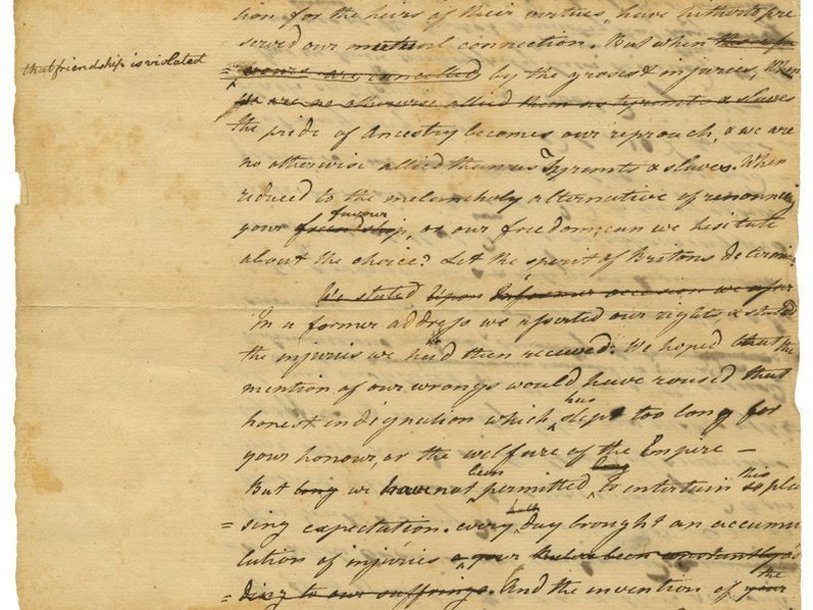 tion for the heirs of their virtues, have hitherto pre
served our mutual connection. But when
that friendship is violated
= are cancelled by the grossest injuries, when
we are no otherwise allied than as tyrants & slaves
the pride of Ancestry becomes our reproach, & we are
no otherwise allied than as Tyrants & slaves. When
reduced to the melancholy alternative of renouncing
favour
your friendship, or our freedom, can we hesitate
about the choice? Let the spirit of Britons determine
We stated upon former occasion we
In a former address we asserted our rights & stated
the injuries we had then received. We hoped that the
mention of our wrongs would have roused that
has
honest indignation which slept too long for
your honour, or the welfare of the Empire —
been long
But long we have not permitted to entertain this plea
= sing expectation. every day brought an accumu
lation of injuries constantly ad
= ding to our sufferings. And the invention of the